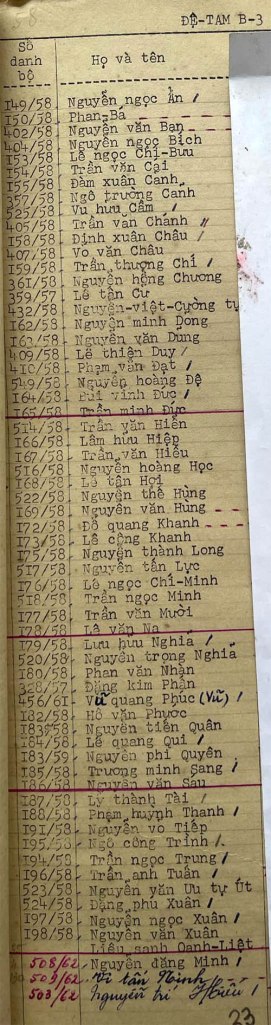 ĐỆ-TAM B-3
Số danh bộ Họ và tên
149/58 Nguyễn ngọc Ẩn
150/58 Phan-Bá
402/58 Nguyễn văn Bạn
404/58 Nguyễn ngọc Bích
153/58 Lê ngọc Chi-Bửu
154/58 Trần văn Cại
155/58 Đàm xuân Canh
357/58 Ngô trường Canh
525/58 Vu hưu Cầm
405/58 Trần văn Chánh
158/58 Đinh xuân Châu
407/58 Vo văn Châu
159/58 Trần thượng Chí
361/58 Nguyễn hồng Chương
359/57 Lê tấn Cư
432/58 Nguyễn-việt-Cường tự
162/58 Nguyễn minh Dong
163/58 Nguyễn văn Dũng
409/58 Lê thiện Duy
410/58 Phạm văn Đạt
549/58 Nguyễn hoàng Đệ
164/58 Bùi vĩnh Đức
165/58 Trần minh Đức
514/58 Trần văn Hiền
166/58 Lâm hữu Hiệp
167/58 Trần văn Hiếu
516/58 Nguyễn hoàng Học
168/58 Lê tấn Hợi
522/58 Nguyễn thế Hùng
169/58 Nguyễn văn Hùng
172/58 Đỗ quang Khanh
173/58 Lê công Khanh
175/58 Nguyễn thành Long
517/58 Nguyễn tấn Lực
176/58 Lê ngọc Chí-Minh
518/58 Trần ngọc Minh
177/58 Trần văn Mười
178/58 Lê văn Na
179/58 Lưu hưu Nghĩa
520/58 Nguyễn trọng Nghĩa
180/58 Phan văn Nhận
328/57 Đặng kim Phận
456/61 Vũ quang Phúc (Vũ)
182/58 Hồ văn Phước
183/58 Nguyễn tiến Quân
184/58 Lê quang Qui
183/59 Nguyễn phi Quyên
185/58 Trương minh Sang
186/58 Nguyễn văn Sáu
187/58 Lý thành Tài
188/58 Phạm huỳnh Thanh
191/58 Nguyễn vo Tiếp
195/58 Ngô công Trinh
194/58 Trần ngọc Trung
196/58 Trần anh Tuấn
523/58 Nguyễn văn Ưu tự Út
524/58 Đặng phú Xuân
197/58 Nguyễn ngọc Xuân
198/58 Nguyễn văn Xuân
Liêu sanh Oanh-Liệt
508/62 Nguyễn đăng Minh
509/62 tấn Minh
503/62 Nguyễn trí Hiếu
23